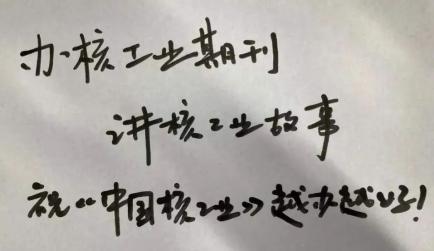 办核工业期刊
讲核工业故事
祝《中国核工业》越办越好！